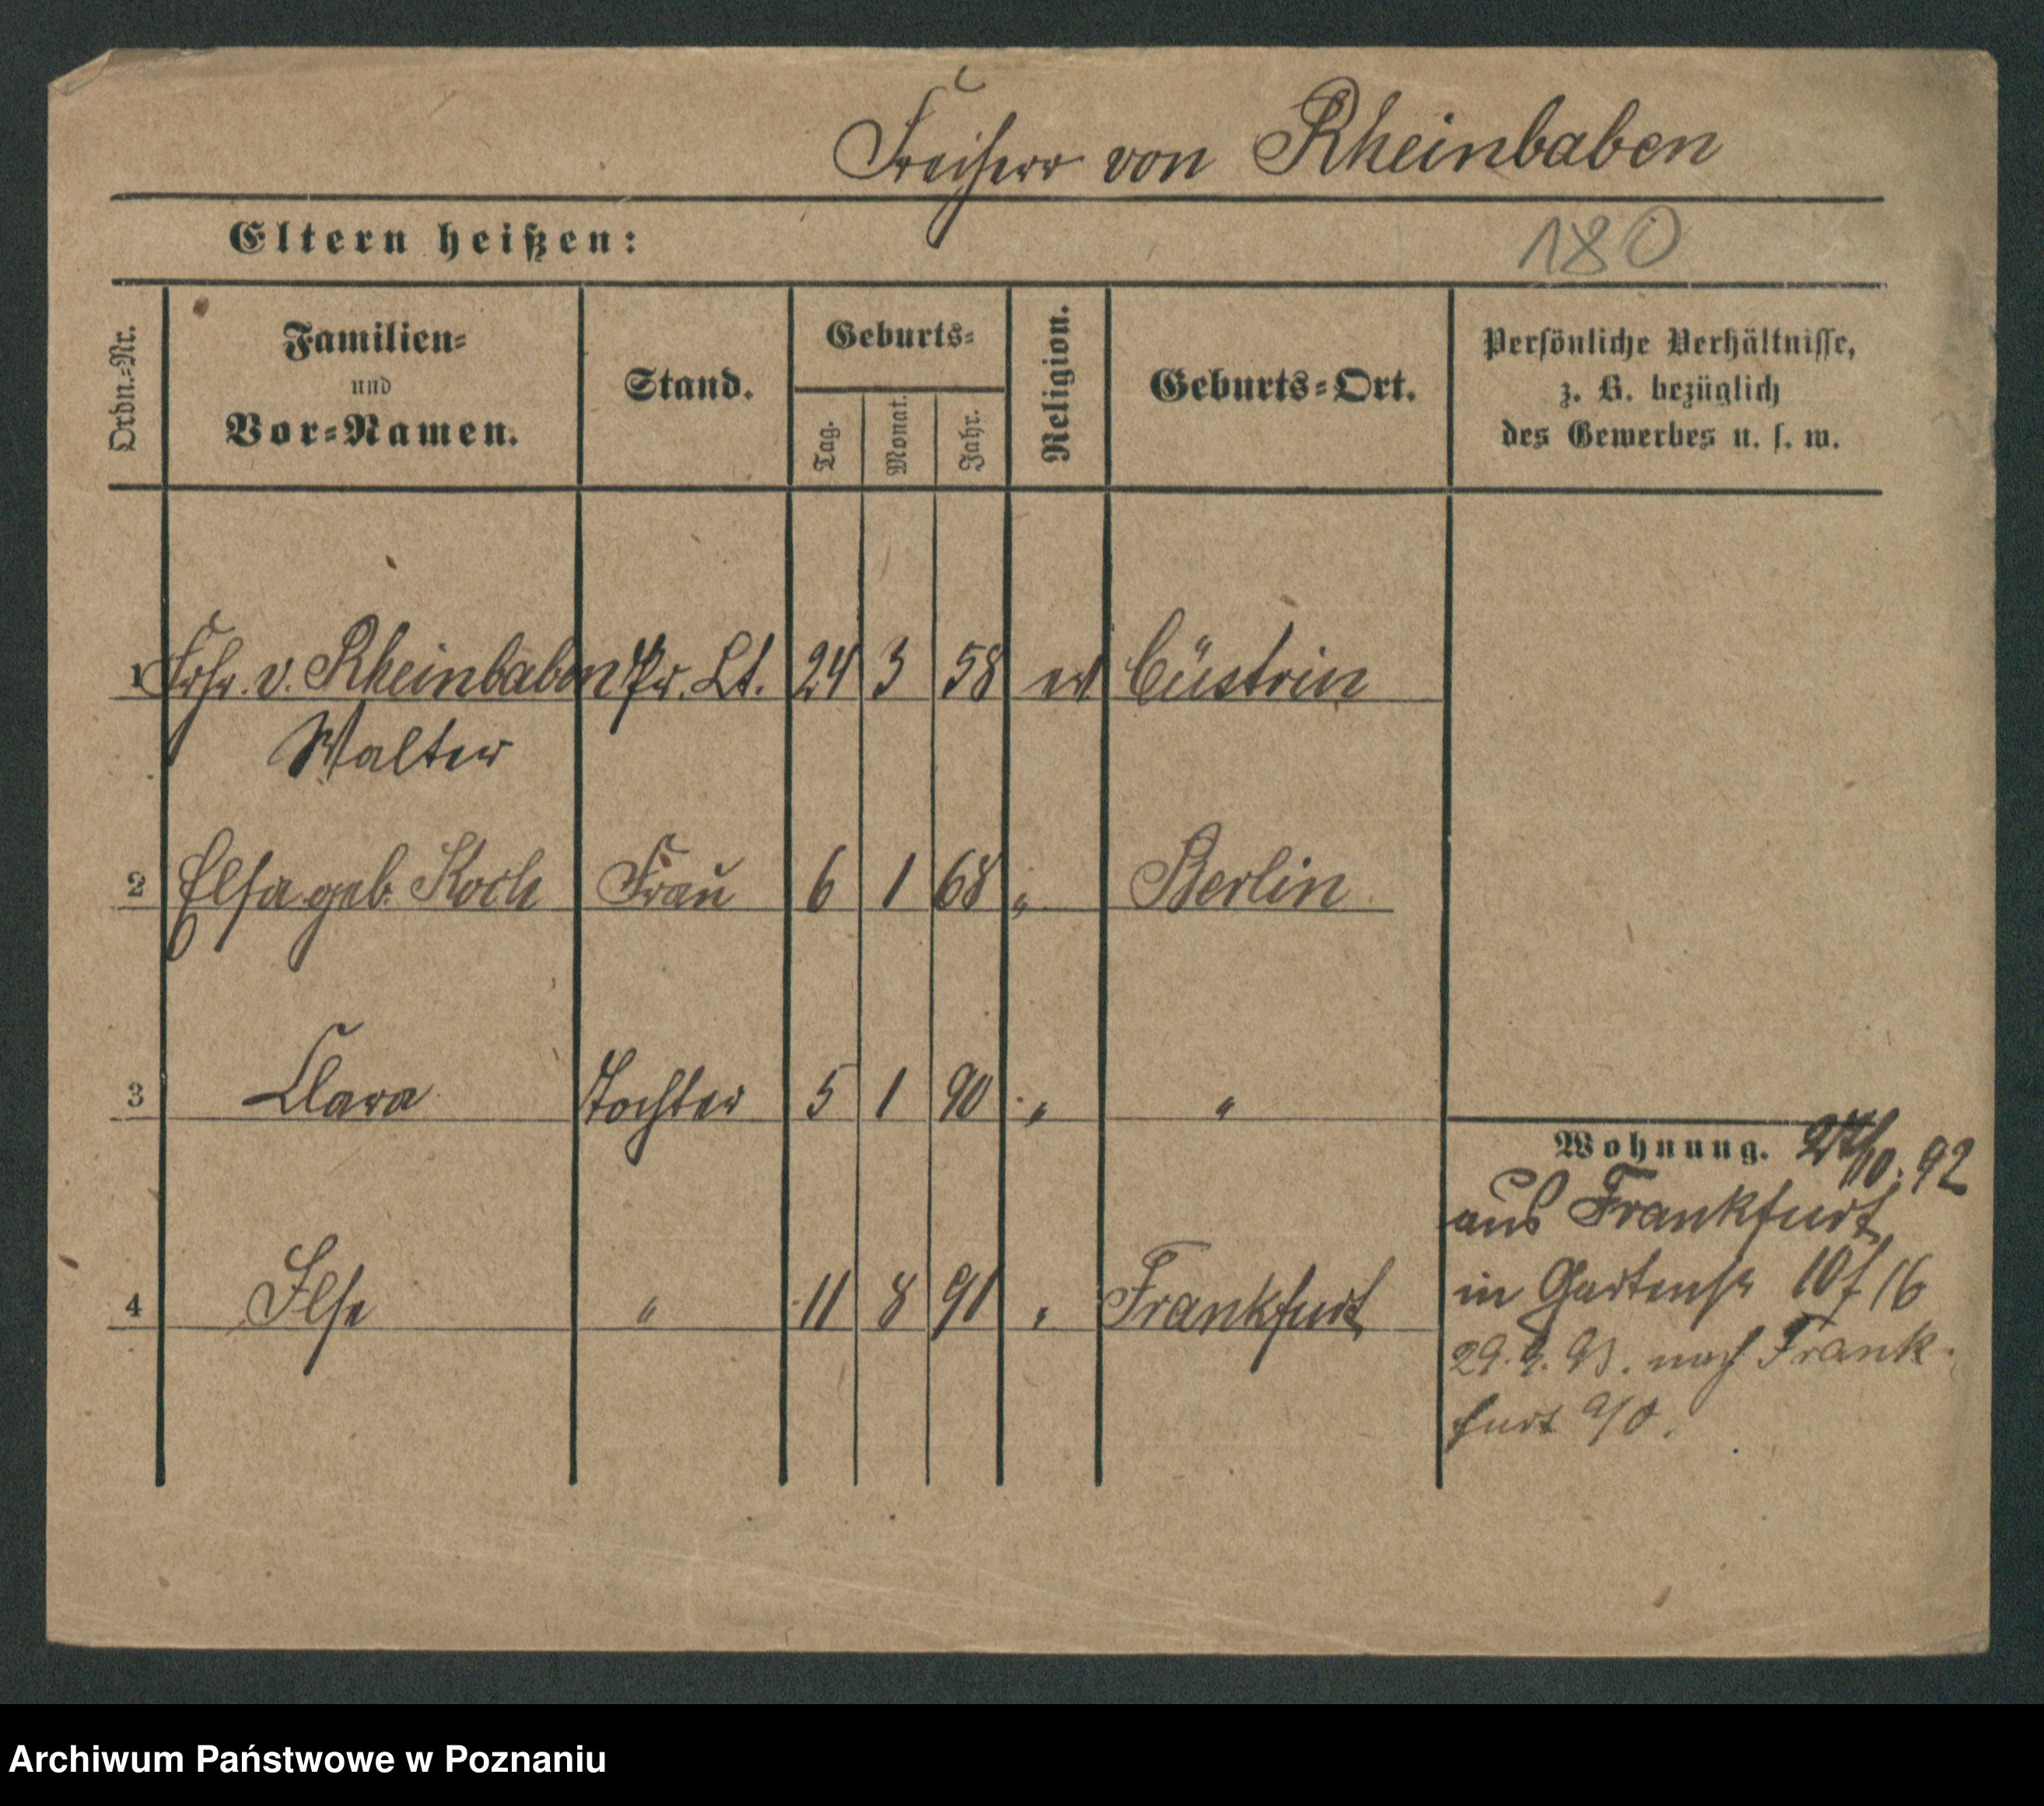 Freiherr von Rheinbaben
Eltern heißen:
180
Ordn.=Nr.
Familien=
und
Vor=Namen.
Stand.
Geburts=
Tag.
Monat.
Jahr.
Religion.
Geburts=Ort.
Persönliche Verhältnisse,
z. B. bezüglich
des Gewerbes u. s. w.
1 Frhr. v. Rheinbaben Pr. Lt. 24 3 58 ev Cüstrin
Walter
2 Elsa geb. Koch Frau 6 1 68 " Berlin
3 Clara Tochter 5 1 90 " "
Wohnung. /10. 92
aus Frankfurt
in Gartenstr 10 f 16
4 Ilse " 11 8 91 " Frankfurt
29. 9. 93. nach Frank-
furt a/O.
Archiwum Państwowe w Poznaniu